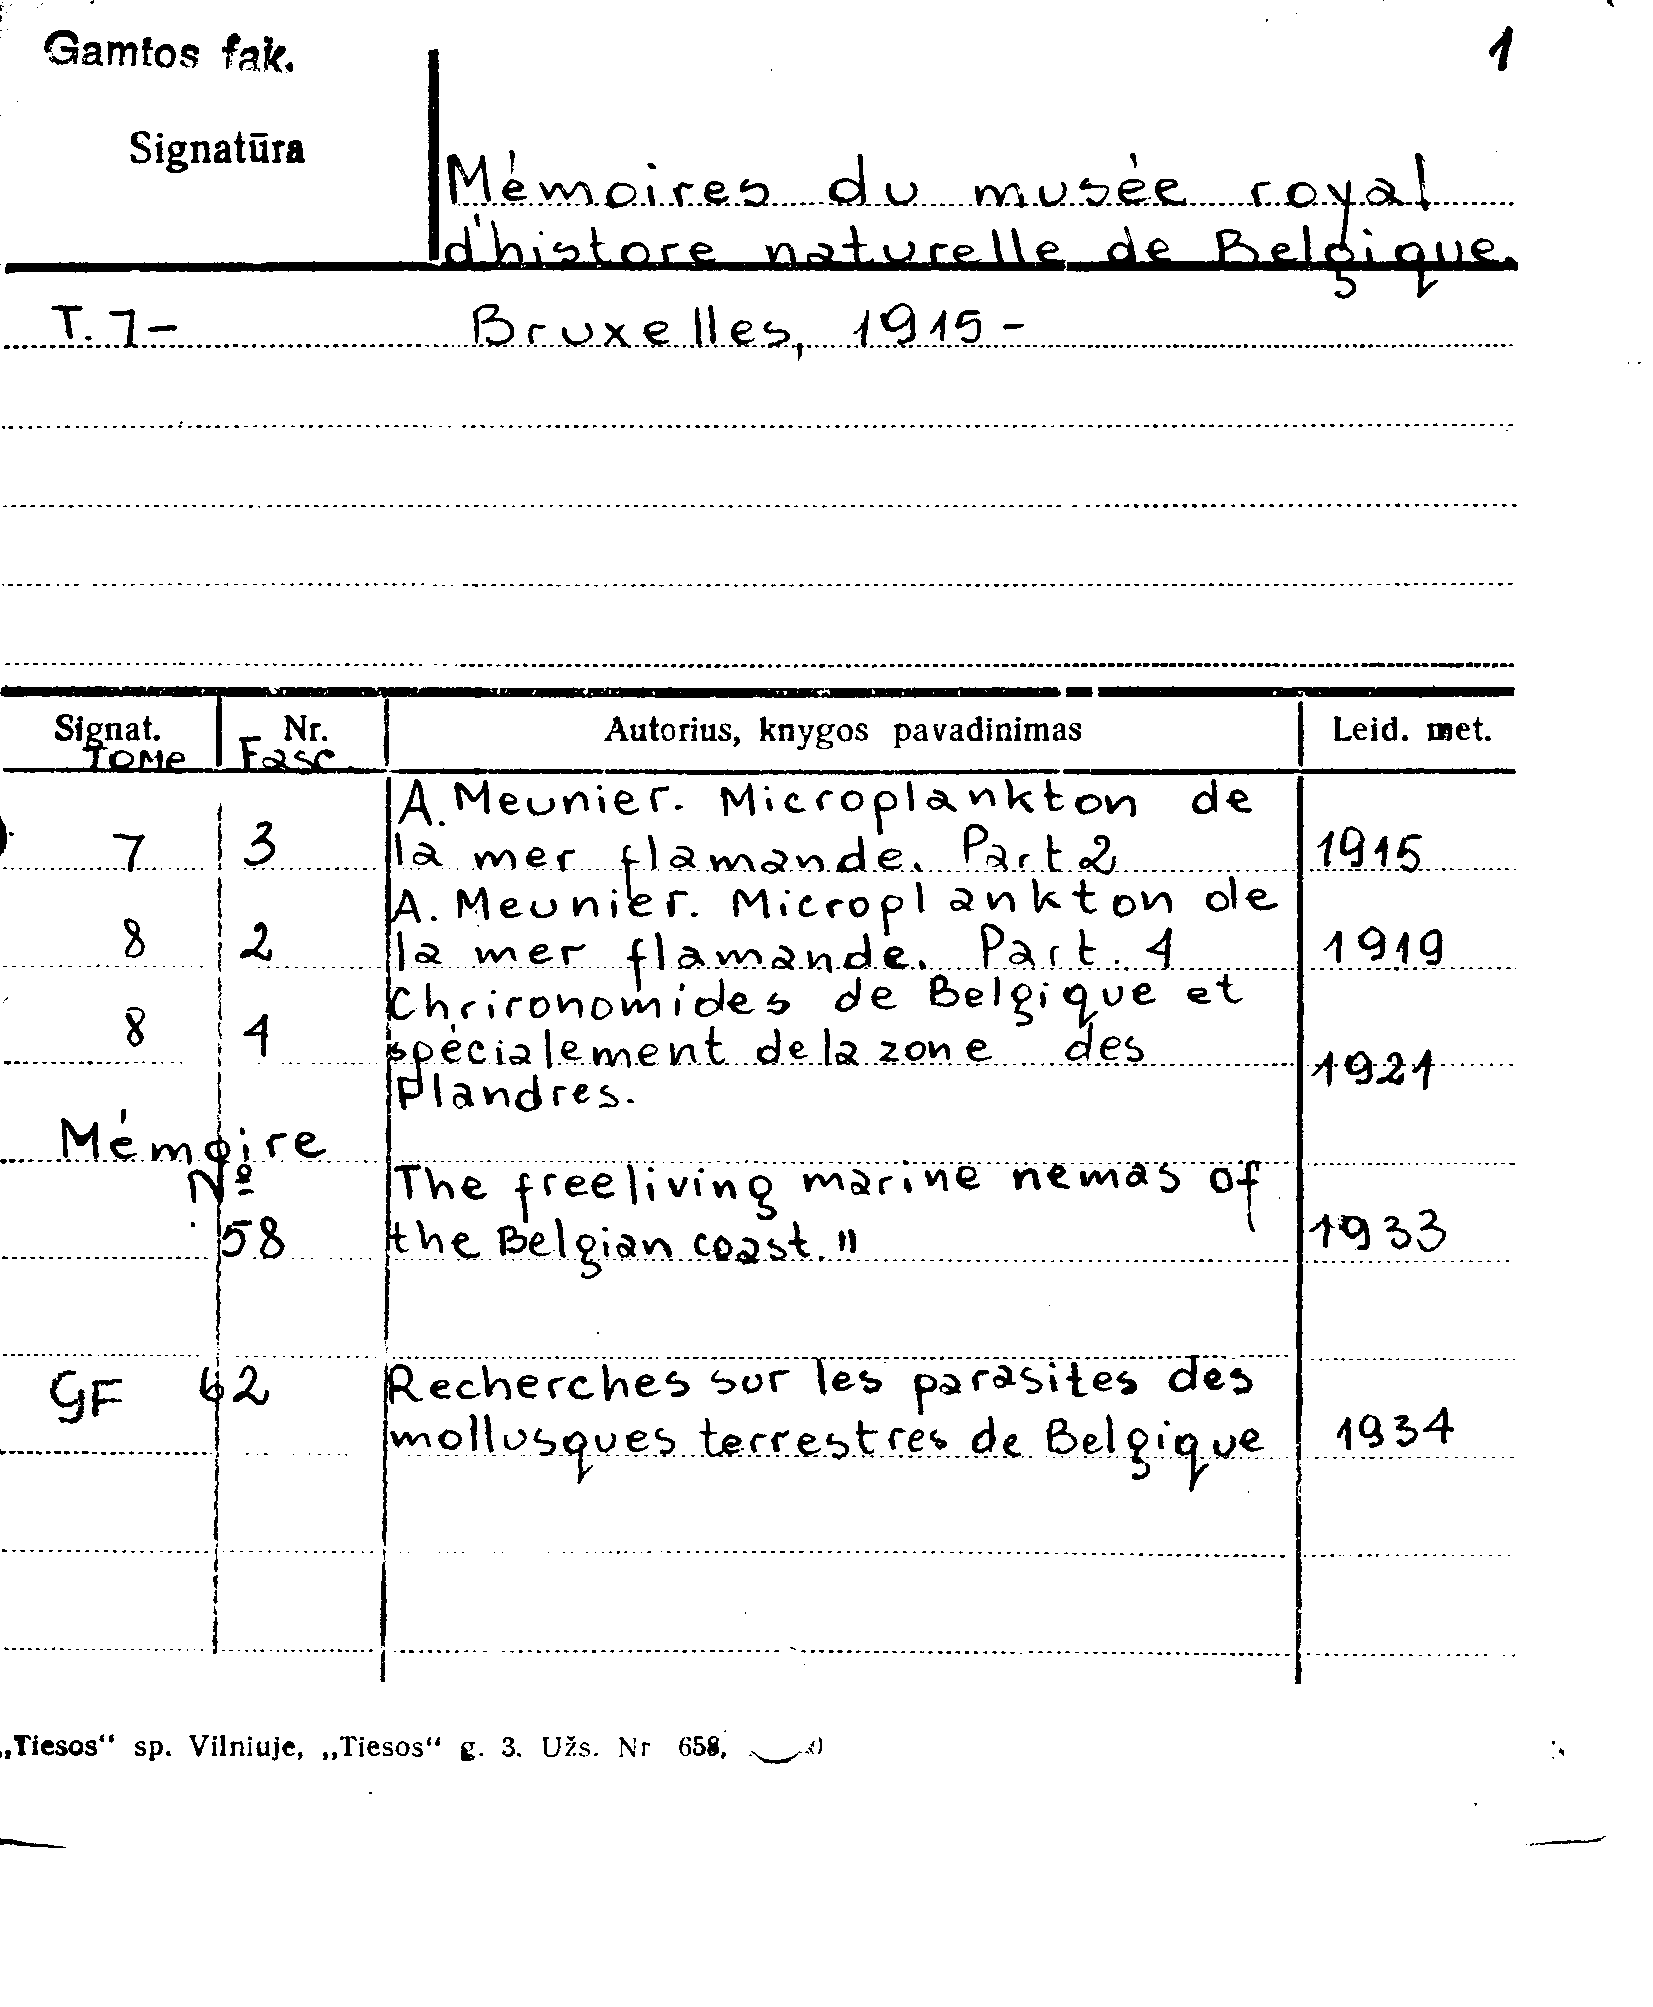 Gamtos fak.
1
Signatūra
Mémoires du musée royal
d'histore naturelle de Belgique.
T. 7- Bruxelles, 1915-
Signat. Nr. Autorius, knygos pavadinimas Leid. met.
Tome Fasc.
A. Meunier. Microplankton de
7 3 la mer flamande. Part 2 1915
A. Meunier. Microplankton de
8 2 la mer flamande. Part. 1 1919
Chrironomides de Belgique et
8 4 spécialement de la zone des
Plandres. 1921
Mémoire
Nº The freeliving marine nemas of
58 the Belgian coast." 1933
GF 62 Recherches sur les parasites des
mollusques terrestres de Belgique 1934
„Tiesos“ sp. Vilniuje, „Tiesos“ g. 3. Užs. Nr 658,